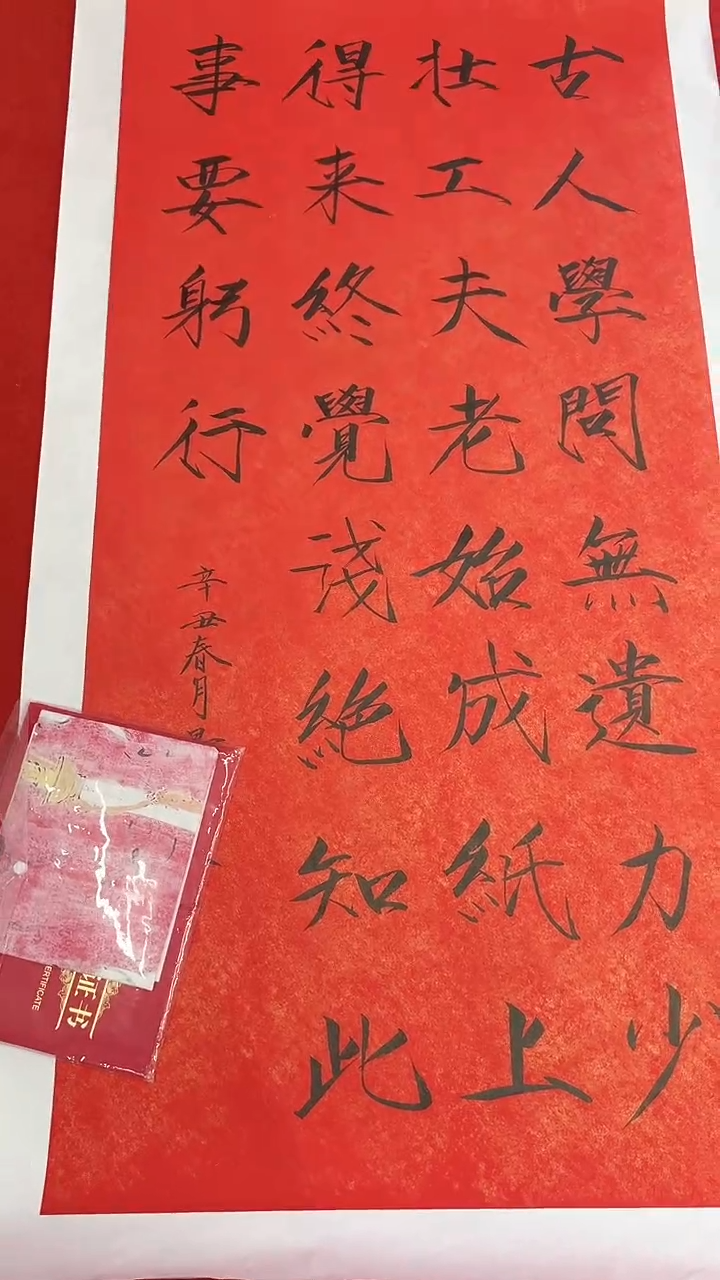 古人學問無遺力少
壮工夫老始成紙上
得来終覺淺絶知此
事要躬行
辛丑春月
证书
ERTIFICATE